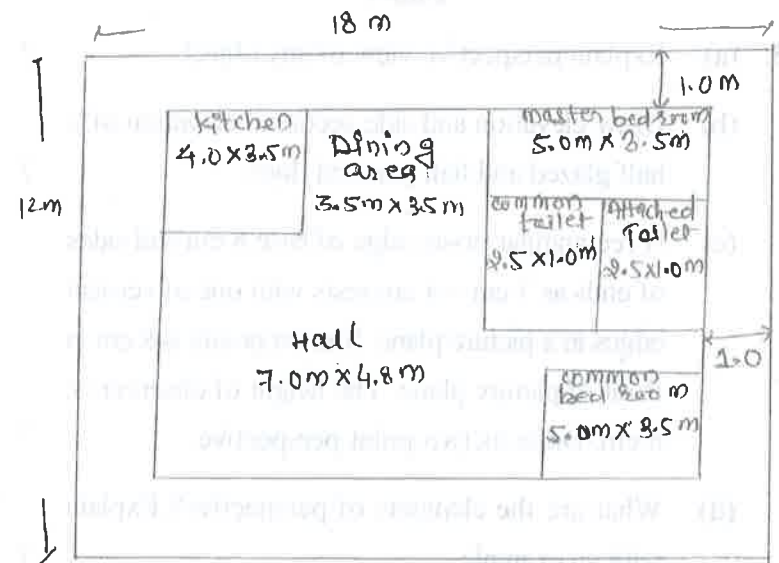 18 m
1.0m
12m
kitchen
4.0 x 3.5m
Dining
area
3.5m x 3.5m
master bedroom
5.0m x 3.5m
common
toilet
2.5 x 1.0m
Attached
Toilet
2.5 x 1.0m
Hall
7.0m x 4.8m
1.0
common
bed room
5.0m x 3.5m